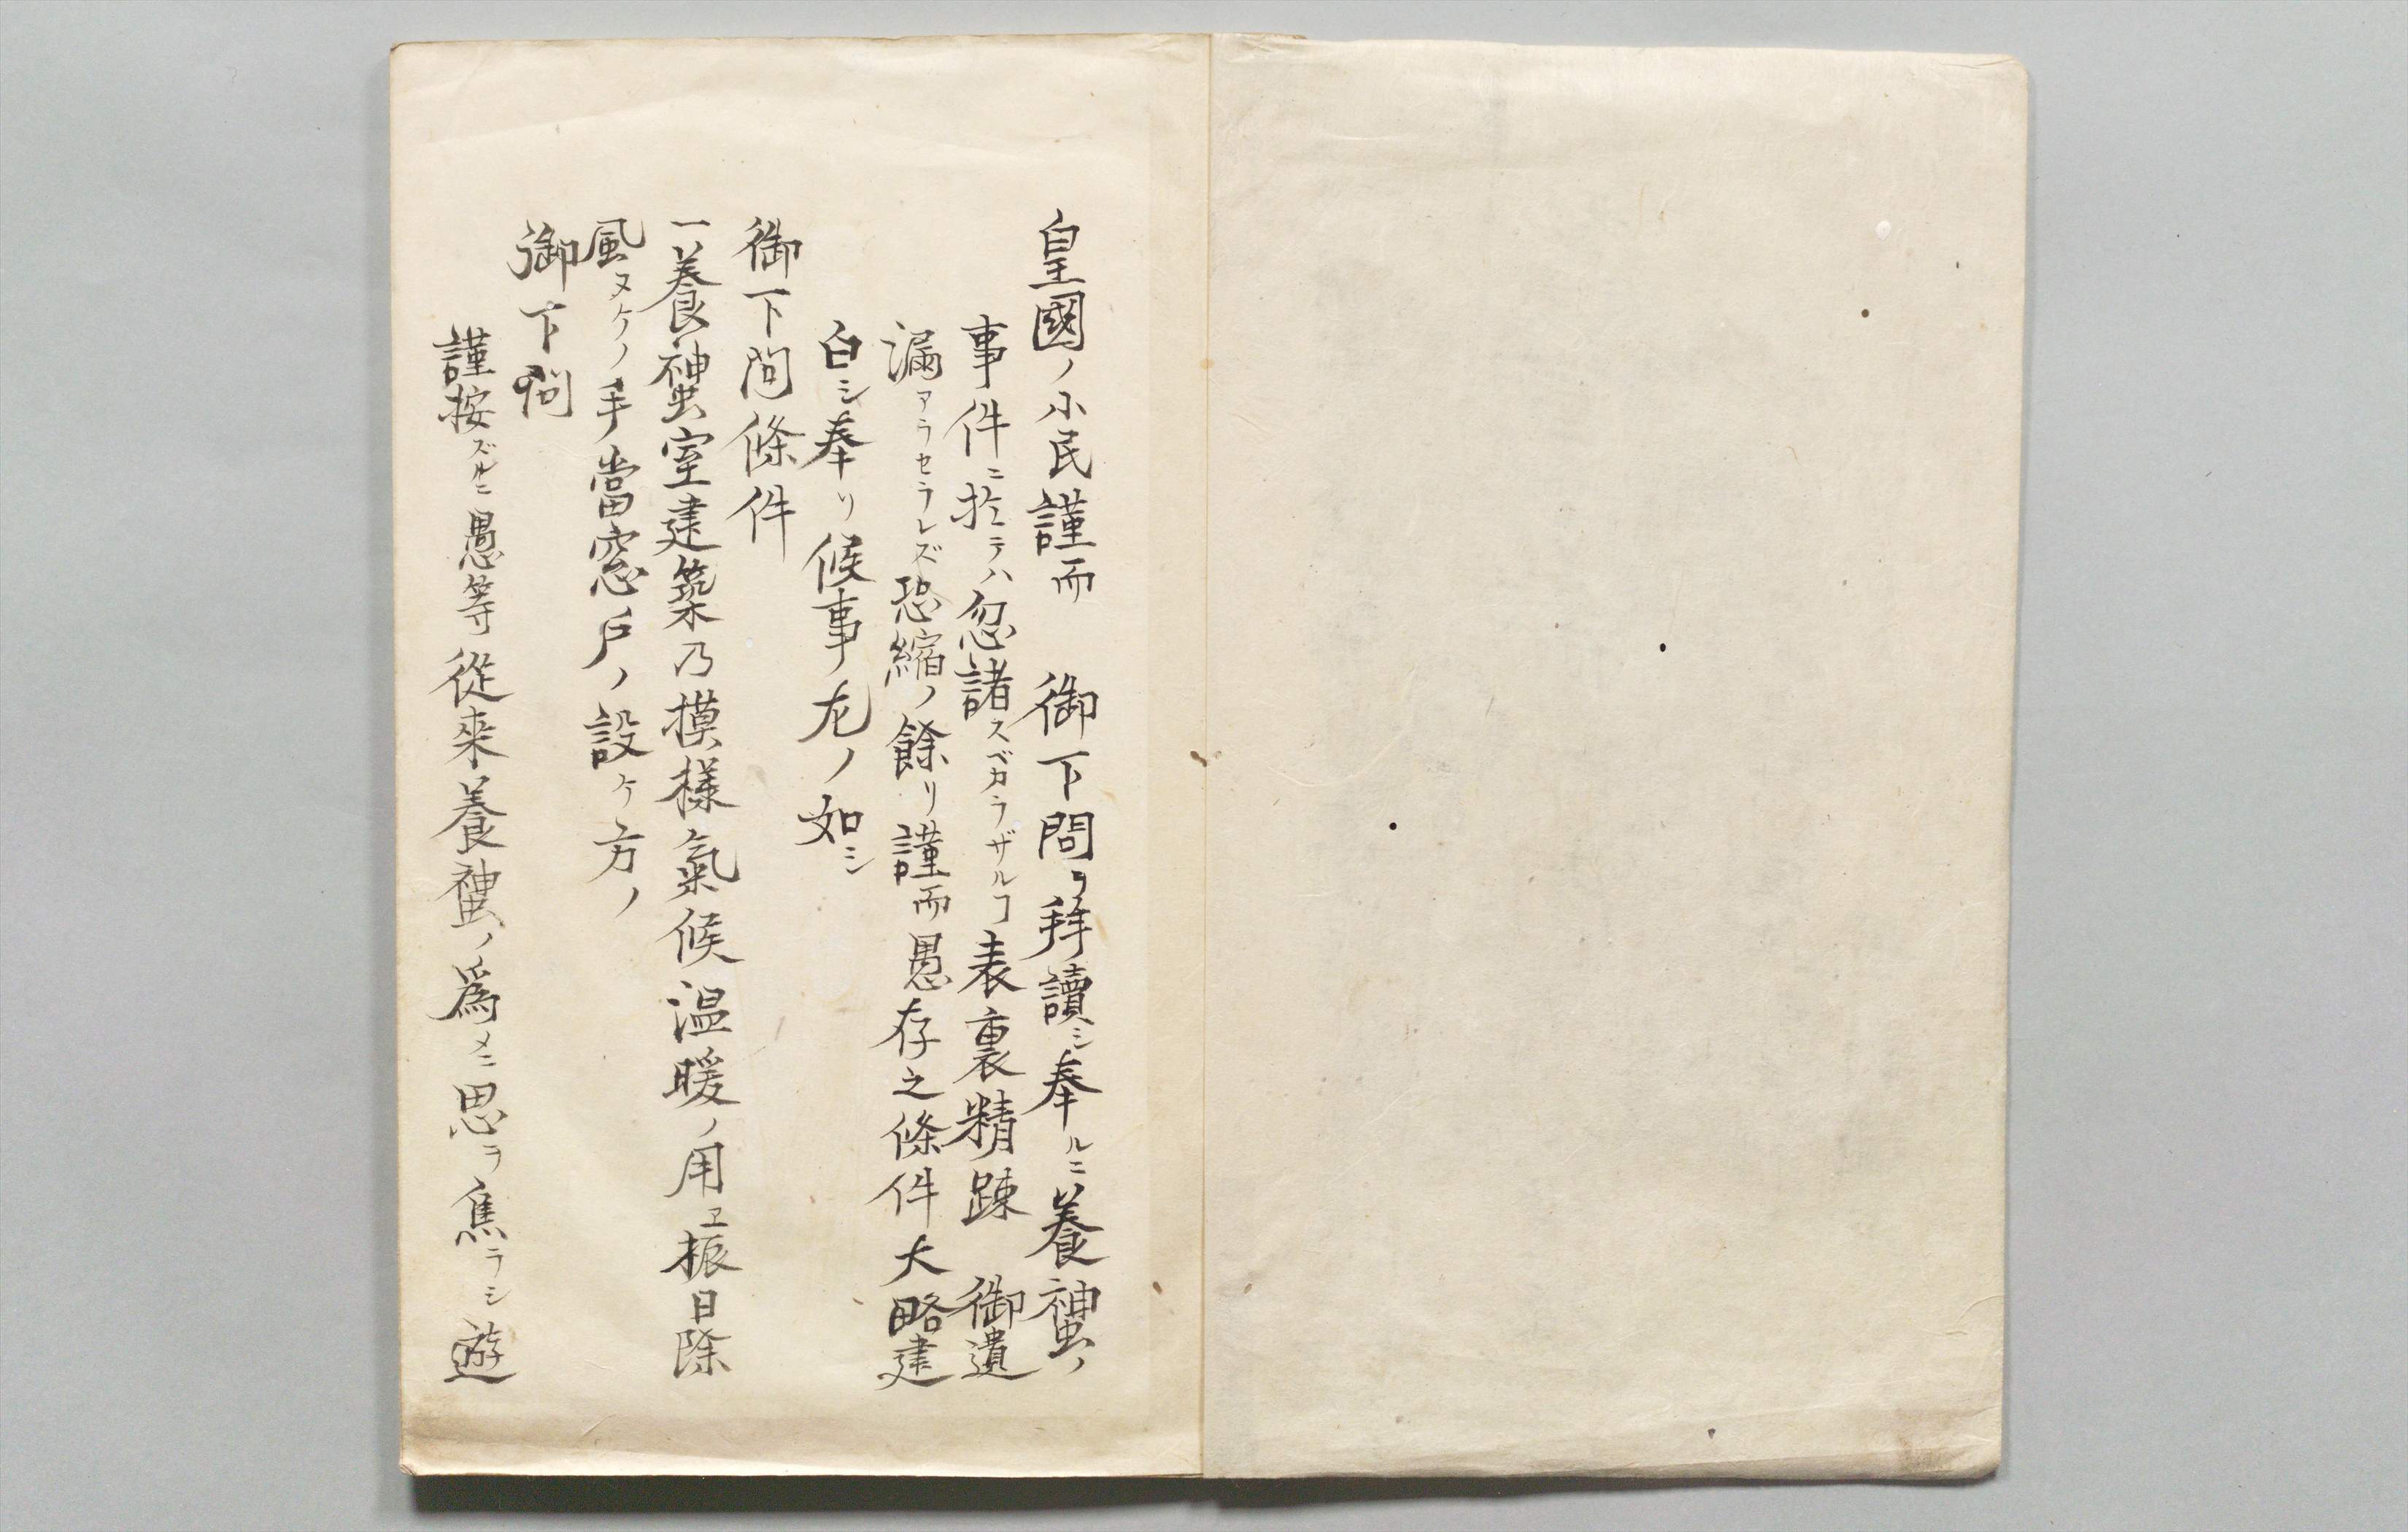 皇國ノ小民謹而　御下問ヲ拝讀シ奉ルニ養蠶ノ
事件ニ於テハ忽諸スベカラザルヿ表裏精踈　御遺
漏アラセラレズ恐縮ノ餘リ謹而愚存之條件大略建
白シ奉リ候事左ノ如シ
御下問條件
一養蠶室建築乃摸樣氣候温暖ノ用ヱ振日除
風ヌケノ手當窓戸ノ設ケ方ノ
御下問
謹按ズルニ愚等從來養蠶ノ爲メニ思ヲ焦ラシ遊